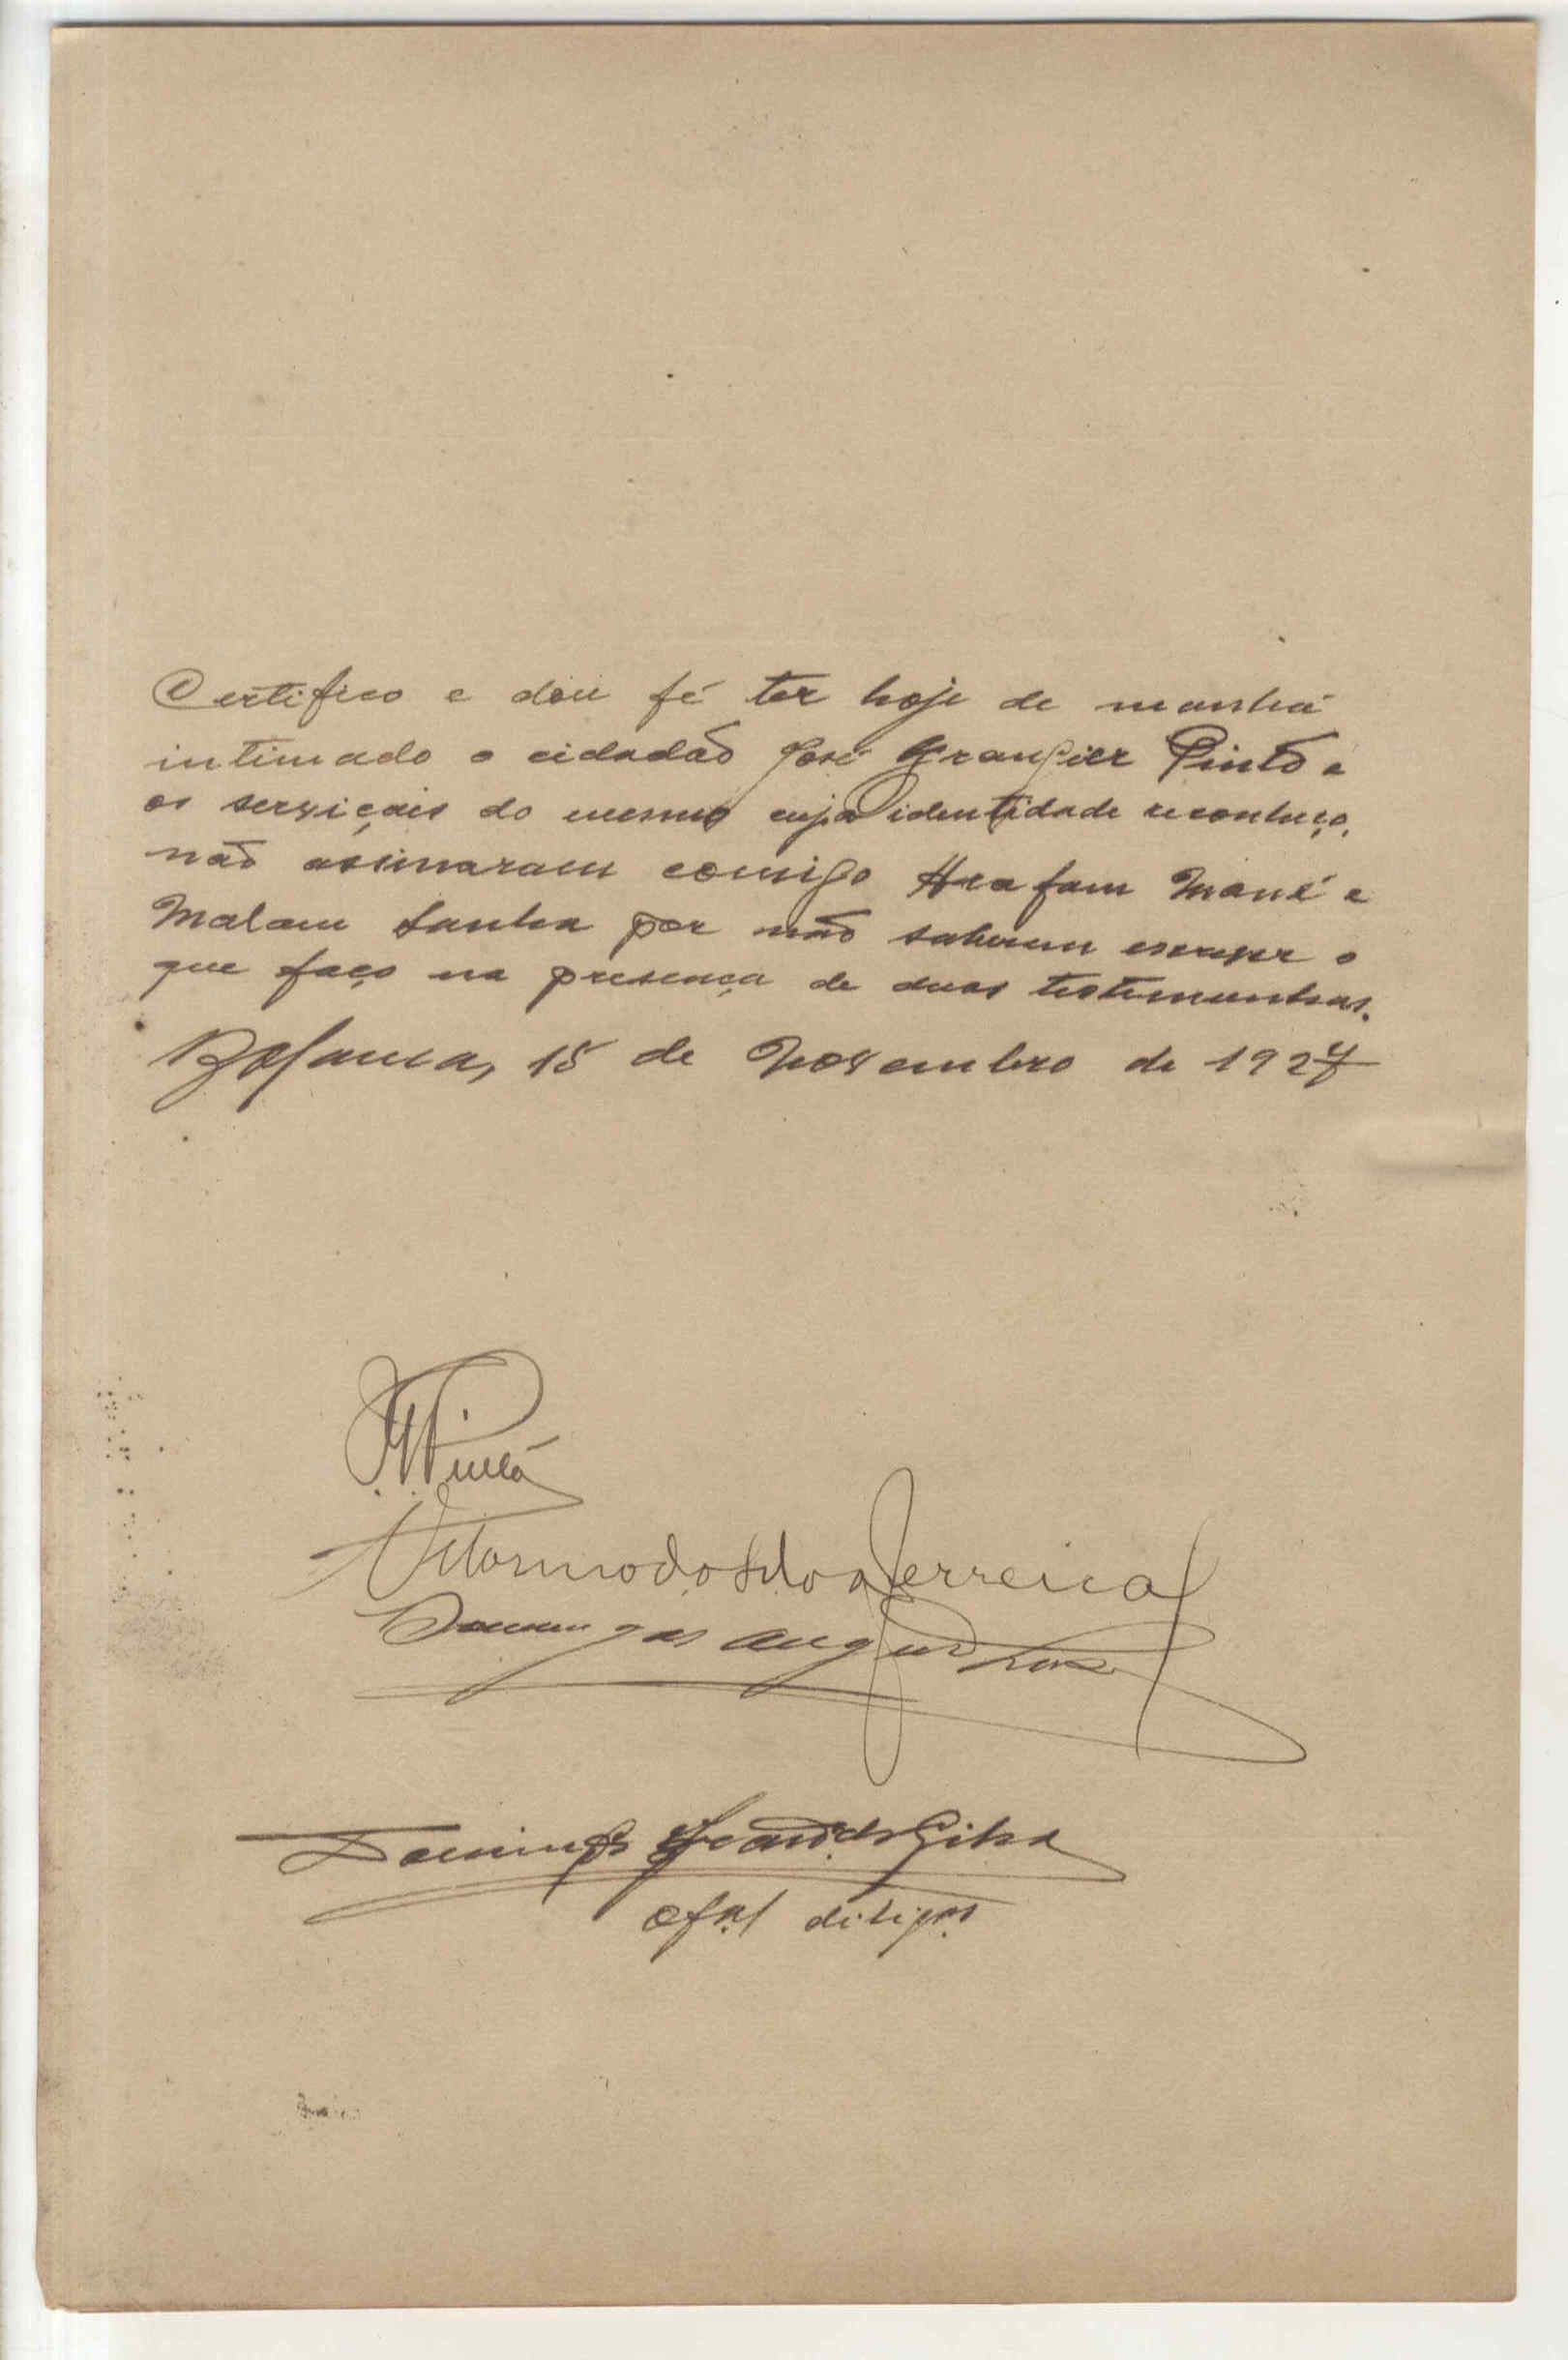 Certifico e dou fé ter hoje de manhã
intimado o cidadão José Grangier Pinto e
os serviçais do mesmo cuja identidade reconheço,
não assinaram comigo Mané e
Malam Sanha por não saberem escrever o
que faço na presença de duas testemunhas.
Bolama, 15 de Novembro de 1927
Pinto
Ferreira
Domingos Augusto
Domingos da Silva
Ofal diligas